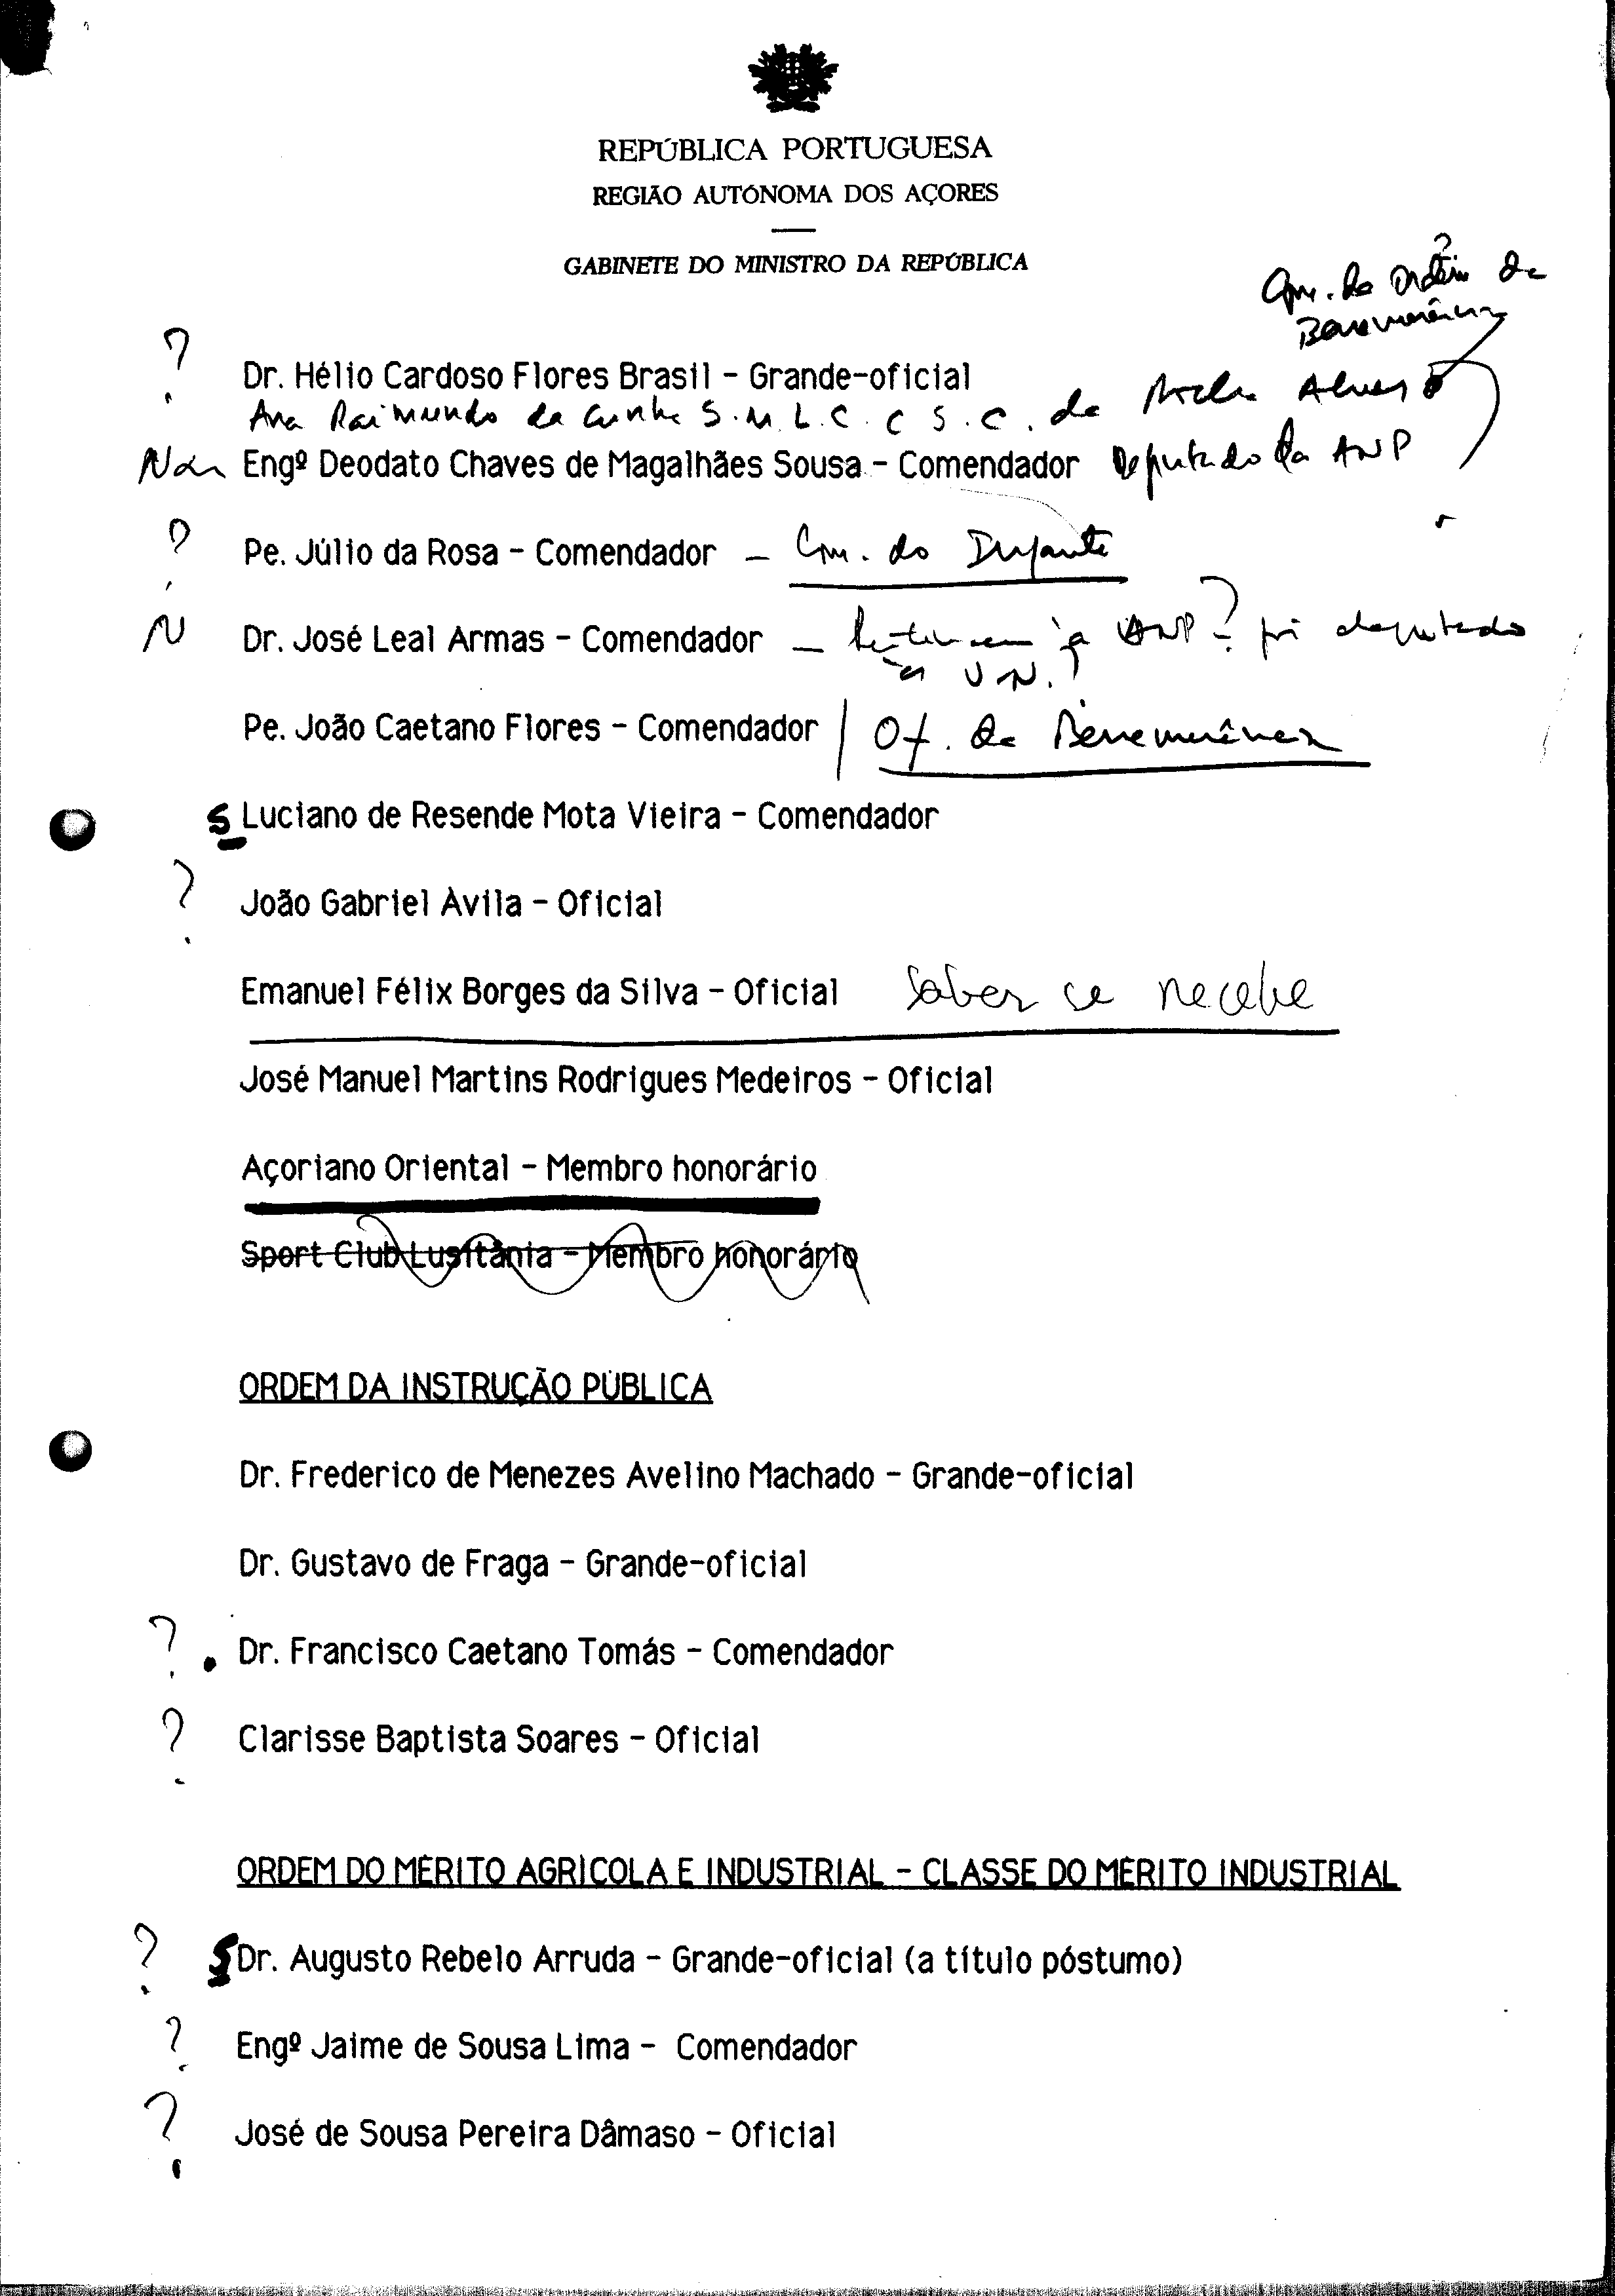 REPÚBLICA PORTUGUESA
REGIÃO AUTÓNOMA DOS AÇORES
GABINETE DO MINISTRO DA REPÚBLICA
?
de
?
Dr. Hélio Cardoso Flores Brasil - Grande-oficial
Ana Raimundo da Cunha S. M. L. C. C S. C. de
Não Engº Deodato Chaves de Magalhães Sousa - Comendador Deputado da ANP
? Pe. Júlio da Rosa - Comendador - Com. do Infante
N Dr. José Leal Armas - Comendador - à ANP? foi deputado
U N.?
Pe. João Caetano Flores - Comendador / Of. de Benemerência
S Luciano de Resende Mota Vieira - Comendador
? João Gabriel Àvila - Oficial
Emanuel Félix Borges da Silva - Oficial Saber se recebe
José Manuel Martins Rodrigues Medeiros - Oficial
Açoriano Oriental - Membro honorário
Sport Club Lusitânia - Membro honorário
ORDEM DA INSTRUÇÃO PÚBLICA
Dr. Frederico de Menezes Avelino Machado - Grande-oficial
Dr. Gustavo de Fraga - Grande-oficial
? . Dr. Francisco Caetano Tomás - Comendador
? Clarisse Baptista Soares - Oficial
ORDEM DO MÉRITO AGRÍCOLA E INDUSTRIAL - CLASSE DO MÉRITO INDUSTRIAL
? S Dr. Augusto Rebelo Arruda - Grande-oficial (a título póstumo)
? Engº Jaime de Sousa Lima - Comendador
? José de Sousa Pereira Dâmaso - Oficial